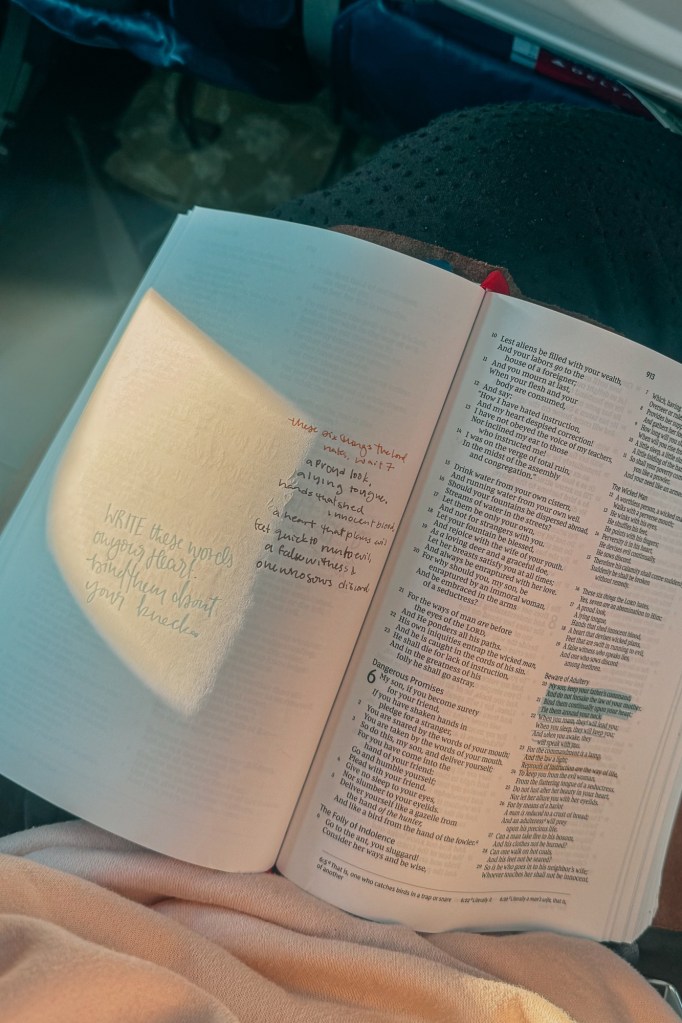 DELTA
these six things the Lord
hates, wait 7
a proud look,
a lying tongue,
hands that shed
innocent blood,
a heart that plans evil
feet quick to run to evil,
a false witness &
one who sows discord
WRITE these words
on your heart.
bind them about
your neck
10 Lest aliens be filled with your wealth,
And your labors go to the
house of a foreigner;
11 And you mourn at last,
When your flesh and your
body are consumed,
12 And say:
"How I have hated instruction,
And my heart despised correction!
13 I have not obeyed the voice of my teachers,
Nor inclined my ear to those
who instructed me!
14 I was on the verge of total ruin,
In the midst of the assembly
and congregation."
15 Drink water from your own cistern,
And running water from your own well.
16 Should your fountains be dispersed abroad,
Streams of water in the streets?
17 Let them be only your own,
And not for strangers with you.
18 Let your fountain be blessed,
And rejoice with the wife of your youth.
19 As a loving deer and a graceful doe,
Let her breasts satisfy you at all times;
And always be enraptured with her love.
20 For why should you, my son, be
enraptured by an immoral woman,
And be embraced in the arms
of a seductress?
21 For the ways of man are before
the eyes of the LORD,
And He ponders all his paths.
22 His own iniquities entrap the wicked man,
And he is caught in the cords of his sin.
23 He shall die for lack of instruction,
And in the greatness of his
folly he shall go astray.
Dangerous Promises
6 My son, if you become surety
for your friend,
If you have shaken hands in
pledge for a stranger,
2 You are snared by the words of your mouth;
You are taken by the words of your mouth.
3 So do this, my son, and deliver yourself;
For you have come into the
hand of your friend:
Go and humble yourself;
Plead with your friend.
4 Give no sleep to your eyes,
Nor slumber to your eyelids.
5 Deliver yourself like a gazelle from
the hand of the hunter,
And like a bird from the hand of the fowler.
The Folly of Indolence
6 Go to the ant, you sluggard!
Consider her ways and be wise,
6:5 That is, one who catches birds in a trap or snare
913
7 Which, having
Overseer or
8 Provides her
And gathers
9 How long will you
When will you
10 A little sleep, a little
A little folding of the
11 So shall your poverty
And your need like an armed
The Wicked Man
12 A worthless person, a wicked
Walks with a perverse mouth;
13 He winks with his eyes,
He shuffles his feet,
He points with his fingers;
14 Perversity is in his heart,
He devises evil continually,
He sows discord.
15 Therefore his calamity shall come
Suddenly he shall be broken
without remedy.
16 These six things the LORD hates,
Yes, seven are an abomination to Him:
17 A proud look,
A lying tongue,
Hands that shed innocent blood,
18 A heart that devises wicked plans,
Feet that are swift in running to evil,
19 A false witness who speaks lies,
And one who sows discord
among brethren.
Beware of Adultery
20 My son, keep your father's command,
And do not forsake the law of your mother.
21 Bind them continually upon your heart;
Tie them around your neck.
22 When you roam, they will lead you;
When you sleep, they will keep you;
And when you awake, they
will speak with you.
23 For the commandment is a lamp,
And the law a light;
Reproofs of instruction are the way of life,
24 To keep you from the evil woman,
From the flattering tongue of a seductress.
25 Do not lust after her beauty in your heart,
Nor let her allure you with her eyelids.
26 For by means of a harlot
A man is reduced to a crust of bread;
And an adulteress will prey
upon his precious life.
27 Can a man take fire to his bosom,
And his clothes not be burned?
28 Can one walk on hot coals,
And his feet not be seared?
29 So is he who goes in to his neighbor's wife;
Whoever touches her shall not be innocent.